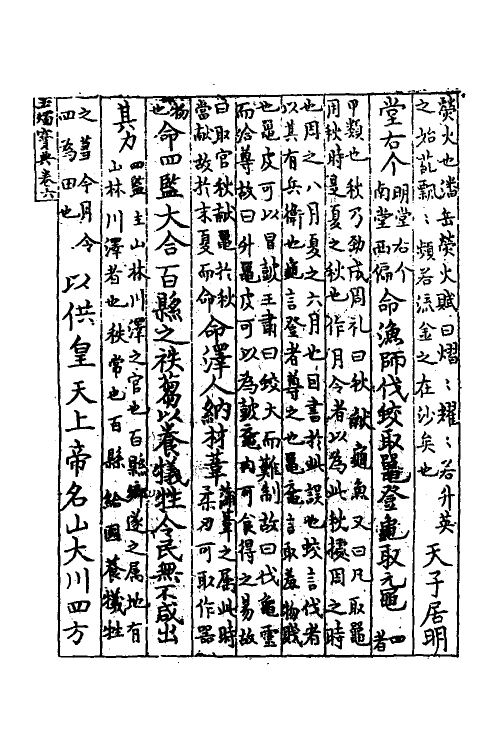 螢火也潘岳螢火賦曰熠〻耀〻若升英
之始蓏飄〻頻若流金之在沙矣也
天子居明
堂右个
明堂右个
南堂西偏
命漁師伐蛟取鼉登龜取元黽
四
者
甲類也秋乃勁成周礼曰秋獻龜魚又曰凡取龜
用秋時是夏之秋也作月令者以為此秋據周之時
也周之八月夏之六月也因書於此誤也蛟言伐者
以其有兵衛也龜言登者尊之也鼉黿言取羞物賤
也鼉皮可以冒鼓王肅曰蛟大而難制故曰伐龜靈
而給尊故曰外鼉皮可以為鼓黿肉可食得之易故
曰取官秋獻鼉於秋
當獻故於末夏而命
命澤人納材葦
蒲葦之属此時
柔刃可取作器
物
也
命四監大合百縣之秩蒭以養犧牲令民無不咸出
其力
四監主山林川澤之官也百縣鄉遂之属地有
山林川澤者也秩常也百縣給國養犧牲
之蒭今月令
四為田也
以供皇天上帝名山大川四方
玉燭寶典卷六